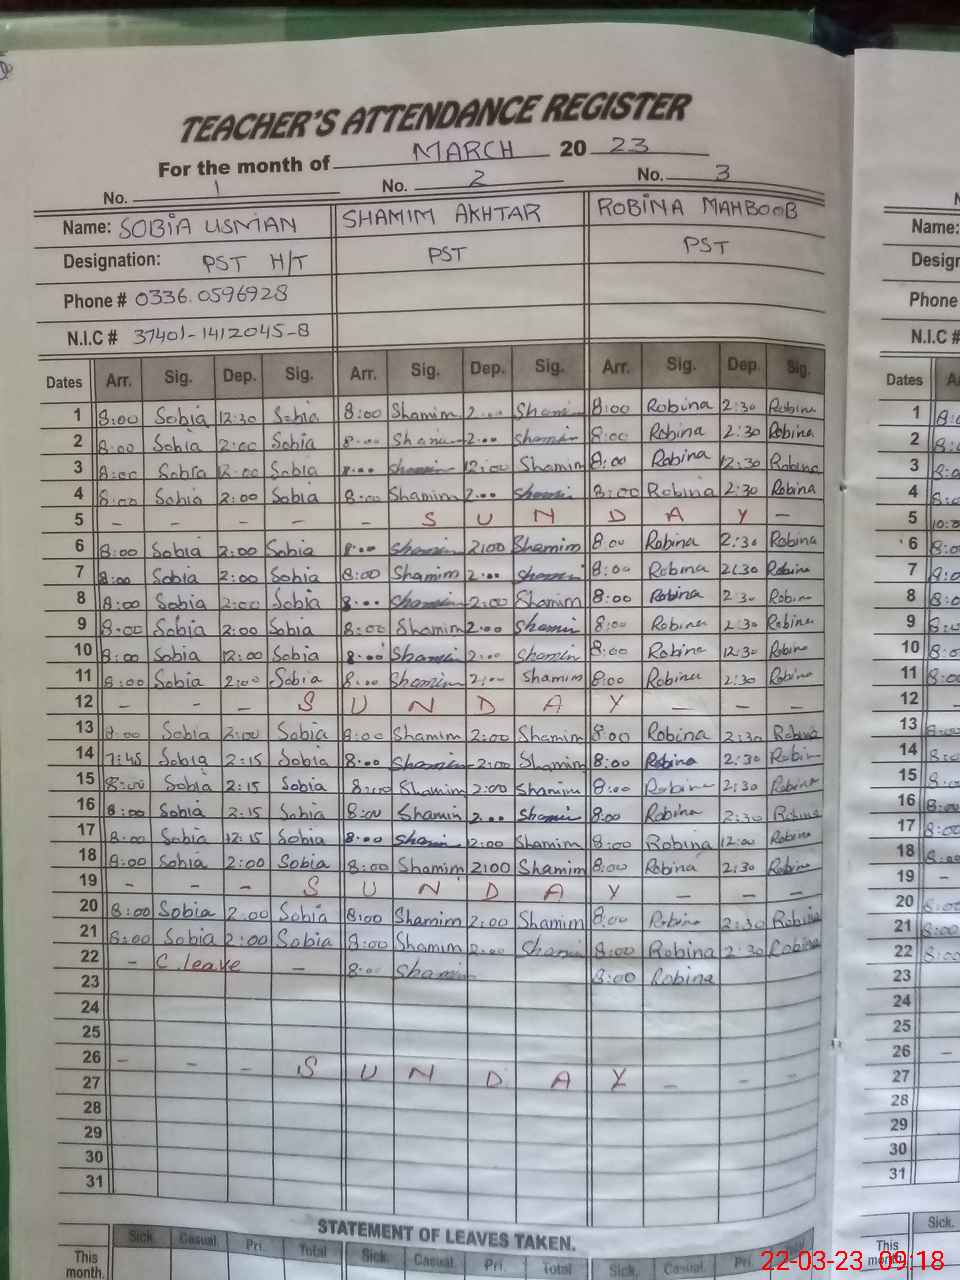 TEACHER'S ATTENDANCE REGISTER
For the month of MARCH 20 23
No. 1 No. 2 No. 3
Name: SOBIA USMAN SHAMIM AKHTAR ROBINA MAHBOOB
Designation: PST H/T PST PST
Phone # 0336.0596928
N.I.C # 37401-1412045-8
Dates Arr. Sig. Dep. Sig. Arr. Sig. Dep. Sig. Arr. Sig. Dep. Sig.
1 8:00 Sobia 12:30 Sobia 8:00 Shamim 2:00 Shamim 8:00 Robina 2:30 Robina
2 8:00 Sobia 2:00 Sobia 8:00 Shamim 2:00 Shamim 8:00 Robina 2:30 Robina
3 8:00 Sobia 12:00 Sobia 8:00 Shamim 12:00 Shamim 8:00 Robina 12:30 Robina
4 8:00 Sobia 2:00 Sobia 8:00 Shamim 2:00 Shamim 8:00 Robina 2:30 Robina
5 - - - - - S U N D A Y -
6 8:00 Sobia 2:00 Sobia 8:00 Shamim 2:00 Shamim 8:00 Robina 2:30 Robina
7 8:00 Sobia 2:00 Sobia 8:00 Shamim 2:00 Shamim 8:00 Robina 2:30 Robina
8 8:00 Sobia 2:00 Sobia 8:00 Shamim 2:00 Shamim 8:00 Robina 2:30 Robina
9 8:00 Sobia 2:00 Sobia 8:00 Shamim 2:00 Shamim 8:00 Robina 2:30 Robina
10 8:00 Sobia 12:00 Sobia 8:00 Shamim 2:00 Shamim 8:00 Robina 12:30 Robina
11 8:00 Sobia 2:00 Sobia 8:00 Shamim 2:00 Shamim 8:00 Robina 2:30 Robina
12 - - - S U N D A Y - - -
13 8:00 Sobia 2:00 Sobia 8:00 Shamim 2:00 Shamim 8:00 Robina 2:30 Robina
14 7:45 Sobia 2:15 Sobia 8:00 Shamim 2:00 Shamim 8:00 Robina 2:30 Robina
15 8:00 Sobia 2:15 Sobia 8:00 Shamim 2:00 Shamim 8:00 Robina 2:30 Robina
16 8:00 Sobia 2:15 Sobia 8:00 Shamim 2:00 Shamim 8:00 Robina 2:30 Robina
17 8:00 Sobia 12:15 Sobia 8:00 Shamim 12:00 Shamim 8:00 Robina 12:00 Robina
18 8:00 Sobia 2:00 Sobia 8:00 Shamim 2:00 Shamim 8:00 Robina 2:30 Robina
19 - - - S U N D A Y - - -
20 8:00 Sobia 2:00 Sobia 8:00 Shamim 2:00 Shamim 8:00 Robina 2:30 Robina
21 8:00 Sobia 2:00 Sobia 8:00 Shamim 2:00 Shamim 8:00 Robina 2:30 Robina
22 - C.leave - 8:00 Shamim 8:00 Robina
23
24
25
26 - - - S U N D A Y - - -
27
28
29
30
31
STATEMENT OF LEAVES TAKEN.
Sick. Casual. Pri. Total Sick. Casual. Pri. Total Sick. Casual. Pri.
This month.
Name:
Phone
N.I.C #
Dates
1
2
3
4
5
6
7
8
9
10
11
12
13
14
15
16
17
18
19
20
21
22
23
24
25
26
27
28
29
30
31
Sick.
This month.
22-03-23 09:18